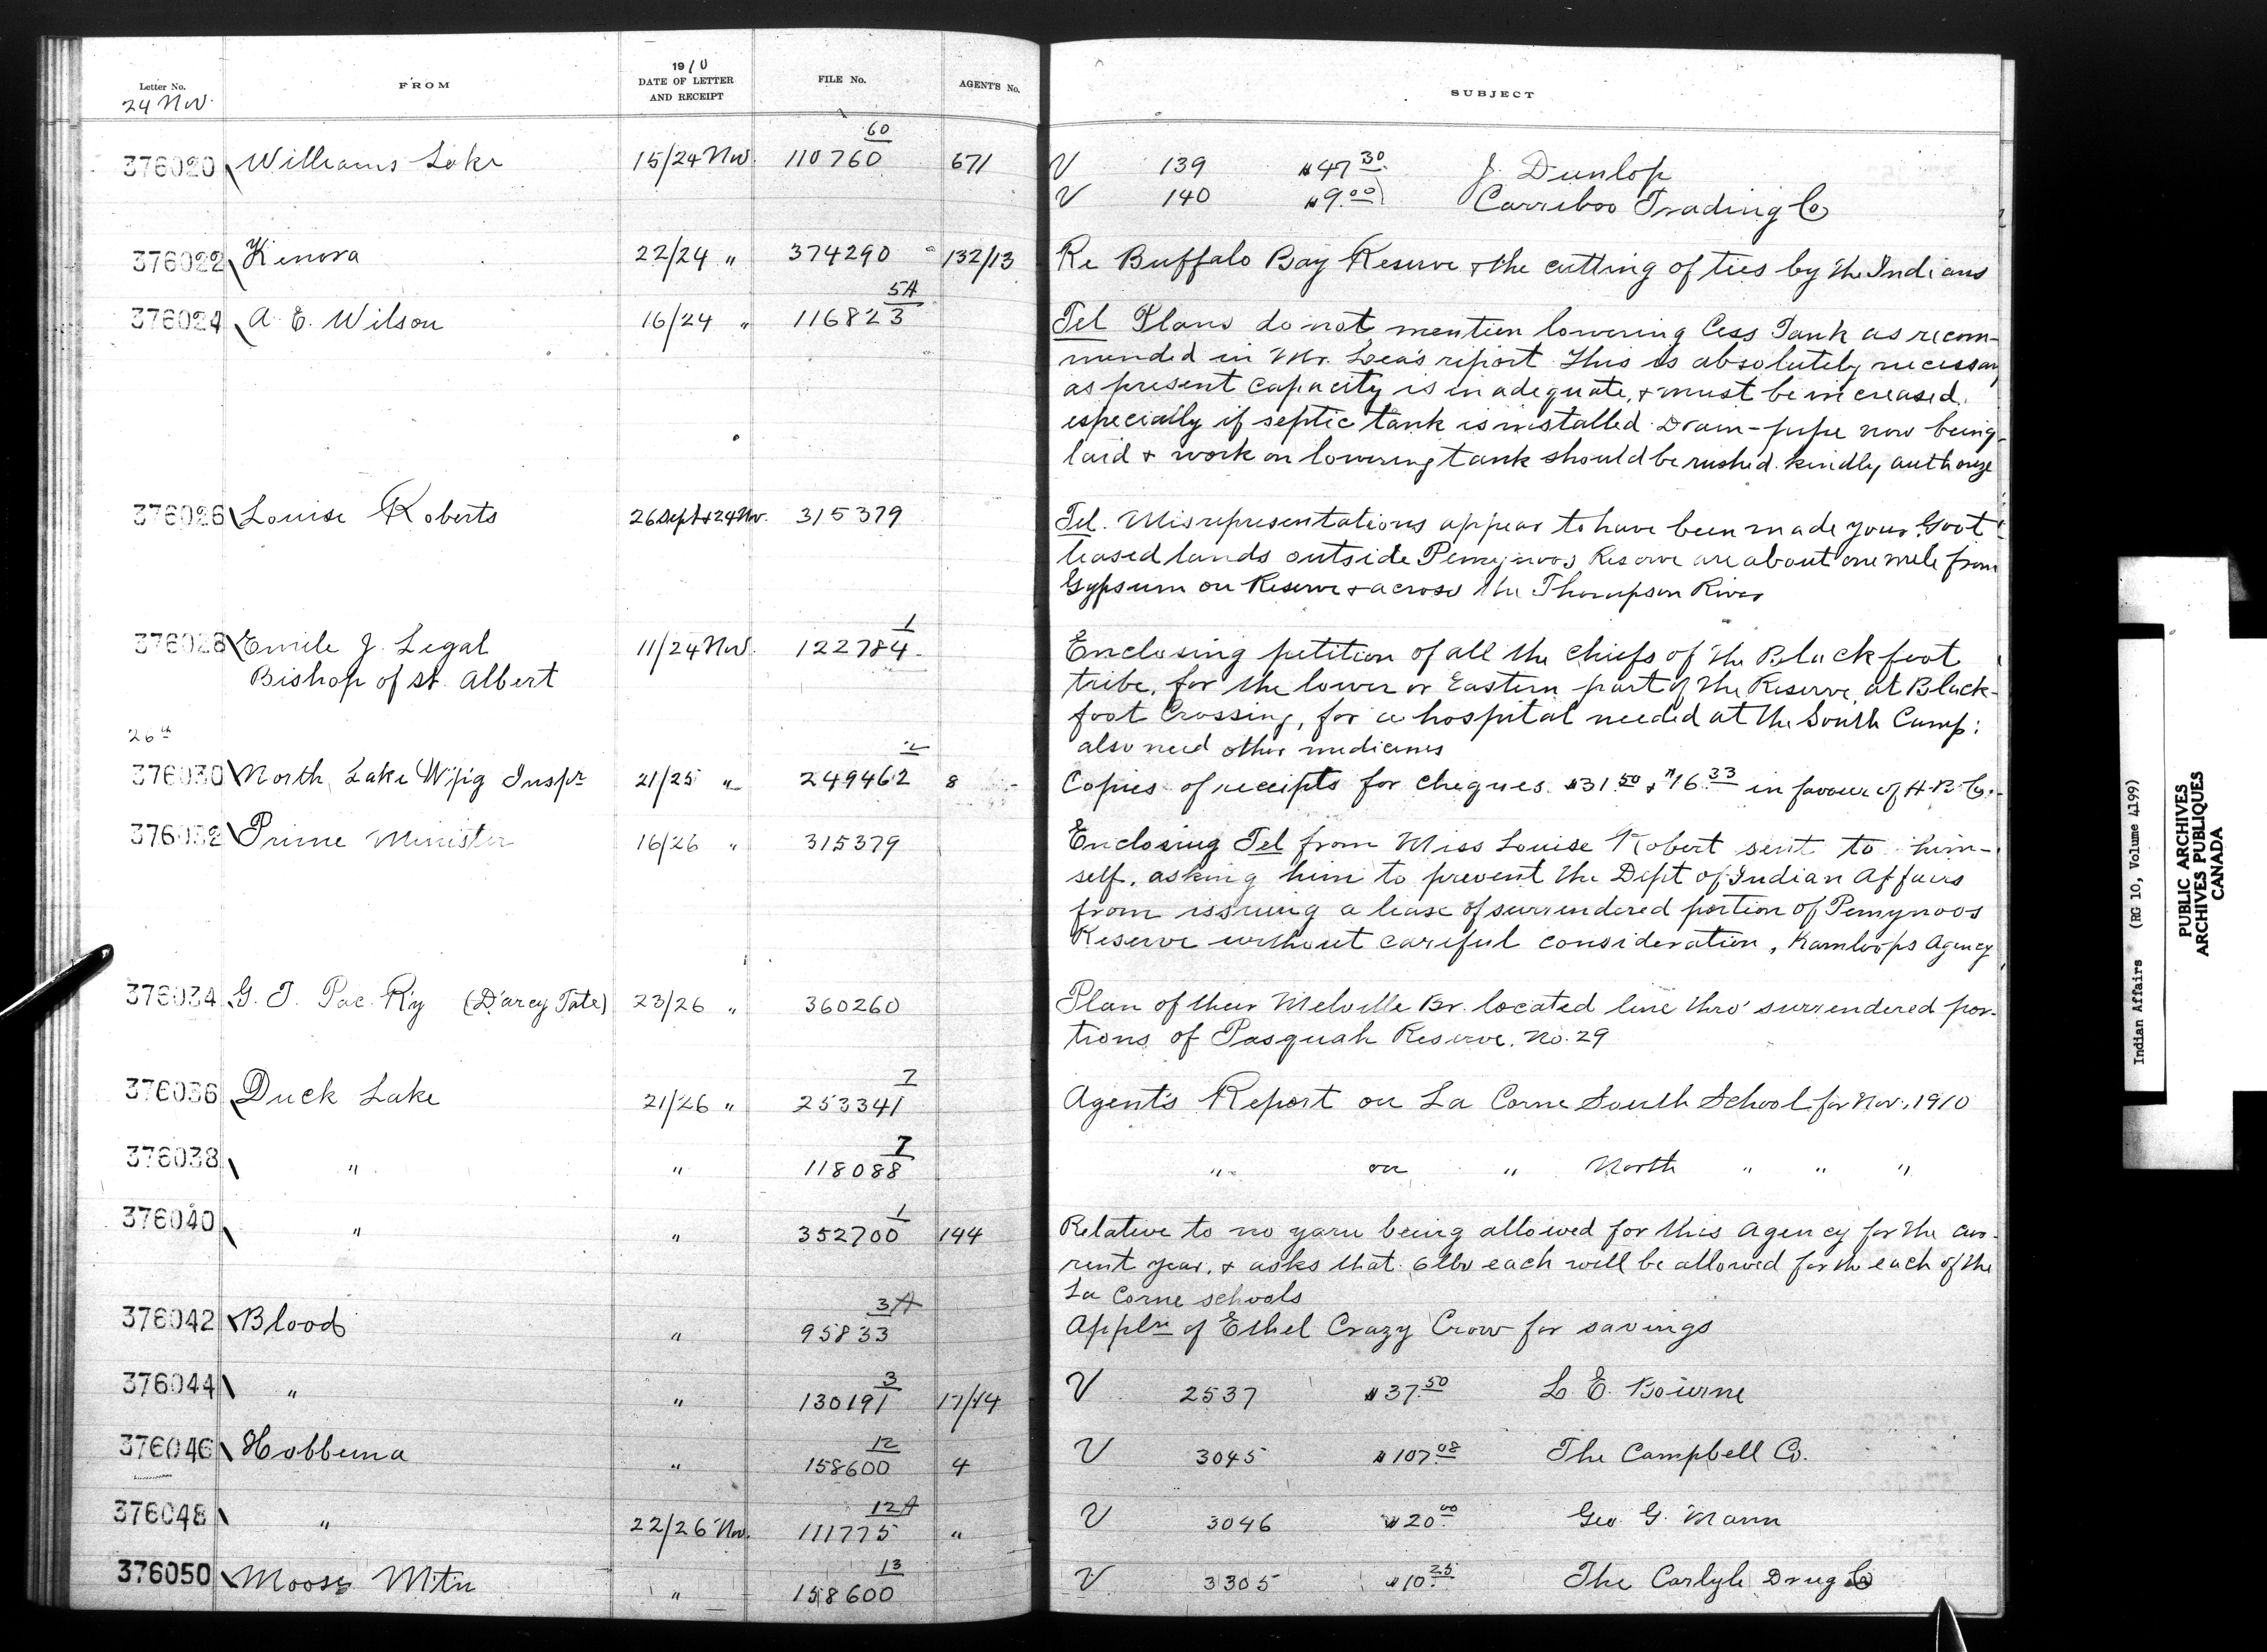 Letter No. FROM 1910 DATE OF LETTER AND RECEIPT FILE No. AGENT'S No. SUBJECT
24 Nov.
376020 Williams Lake 15/24 Nov. 110760 60 671 V 139 $47.30 J. Dunlop
V 140 $9.00 Carriboo Trading Co
376022 Kenora 22/24 " 374290 132/13 Re Buffalo Bay Reserve & the cutting of ties by the Indians
376024 A. E. Wilson 16/24 " 116823 5A Tel Plans do not mention lowering Cess Tank as recom-
mended in Mr. Lea's report This is absolutely necessary
as present capacity is inadequate, & must be increased.
especially if septic tank is installed Drain-pipe now being
laid & work on lowering tank should be rushed. kindly authorize
376026 Louise Roberts 26 Sept & 24 Nov. 315379 Tel. Misrepresentations appear to have been made your Govt
leased lands outside Pemynoos Reserve are about one mile from
Gypsum on Reserve & across the Thompson River
376028 Emile J. Legal 11/24 Nov. 122784 1 Enclosing petition of all the chiefs of the Blackfoot
Bishop of St. Albert tribe, for the lower or Eastern part of the Reserve, at Black-
foot Crossing, for a hospital needed at the South Camp:
also need other medicines
26th
376030 North Lake W'p'g Inspr 21/25 " 249462 2 8 Copies of receipts for cheques $31.50 & $16.33 in favour of H.B. Co.
376032 Prime Minister 16/26 " 315379 Enclosing Tel from Miss Louise Robert sent to him-
self, asking him to prevent the Dept of Indian Affairs
from issuing a lease of surrendered portion of Pemynoos
Reserve without careful consideration, Kamloops Agency
376034 G. T. Pac. R'y (D'arcy Tate) 23/26 " 360260 Plan of their Melville Br. located line thro' surrendered por-
tions of Pasquah Reserve. No. 29
376036 Duck Lake 21/26 " 253341 7 Agent's Report on La Corne South School for Nov., 1910
376038 " " 118088 7 " on " North " " "
376040 " " 352700 1 144 Relative to no yarn being allowed for this Agency for the cur-
rent year, & asks that 6 lbs each will be allowed for the each of the
La Corne schools
376042 Blood " 95833 3A Appln of Ethel Crazy Crow for savings
376044 " " 130191 3 17/14 V 2537 $37.50 L. E. Bourne
376046 Hobbema " 158600 12 4 V 3045 $107.08 The Campbell Co.
376048 " 22/26 Nov. 111775 12A " V 3046 $20.00 Geo. G. Mann
376050 Moose Mtn " 158600 13 V 3305 $10.25 The Carlyle Drug Co
Indian Affairs (RG 10, Volume 4199)
PUBLIC ARCHIVES
ARCHIVES PUBLIQUES
CANADA